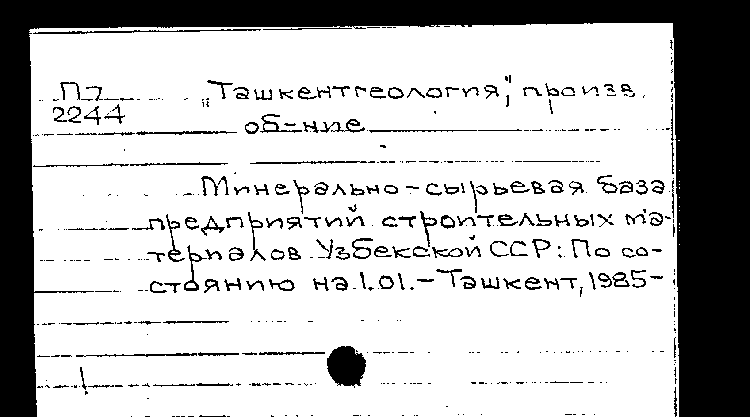 П7
2244
„Ташкентгеология", произв.
об-ние
Минерально-сырьевая база
предприятий строительных ма-
териалов Узбекской ССР: По со-
стоянию на 1.01.-Ташкент, 1985-